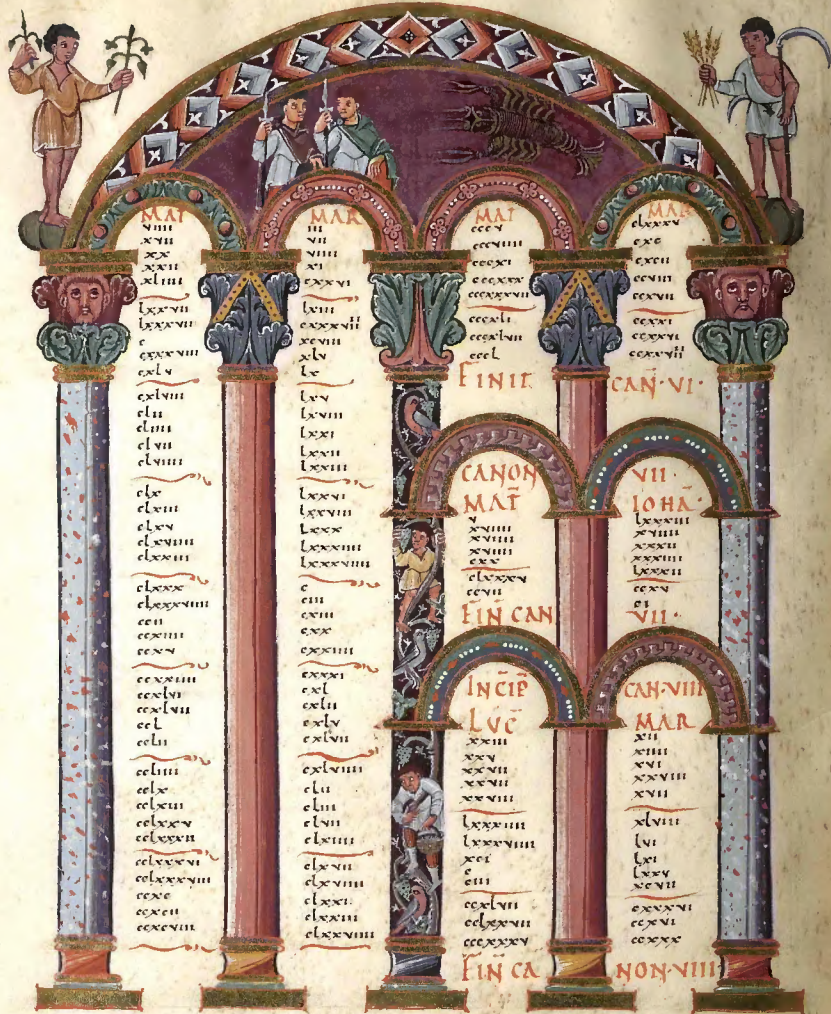 MAT
viiii
xvii
xx
xxii
xliiii
lxxvii
lxxxvii
c
cxxxviiii
cxlv
cxlviii
clii
cliiii
clvii
clviiii
clx
clxiii
clxv
clxviiii
clxxiii
clxxx
clxxxviiii
ccii
ccxiiii
ccxv
ccxxiiii
ccxlvi
ccxlvii
ccl
cclii
ccliiii
cclx
cclxiii
cclxxv
cclxxxii
cclxxxvi
cclxxxviii
ccxc
ccxcii
ccxcviii
MAR
iii
vii
viiii
xi
cxxvi
lxiii
cxxxvii
xcviii
xlv
lx
lxv
lxviii
lxxi
lxxii
lxxiii
lxxvi
lxxviii
lxxx
lxxxiiii
lxxxviiii
c
ciii
cxiii
cxx
cxxiiii
cxxxi
cxl
cxlii
cxlv
cxlvii
cxlviiii
clii
cliii
clvii
clxiiii
clxvii
clxviiii
clxxi
clxxiii
clxxviiii
MAT
cccv
cccviiii
cccxi
cccxxx
cccxxxvii
cccxli
cccxlvii
cccl
MAR
clxxxv
cxc
cxcii
ccviii
ccvii
ccxxi
ccxxvii
FINIT CAN·VI·
CANON VII·
MAT̄ IOHA·
v
xviiii
xviii
xviiii
cxx
clxxxv
ccvii
lxxxiii
xviiii
xxxii
xxxiiii
lxxxii
ccxv
ci
FIN CAN VII·
INCIP̄ CAN·VIII
LVC̄ MAR
xxiii
xxv
xxvii
xxvii
xxviii
lxxxiiii
lxxxviiii
xci
c
ciii
ccxlvii
cclxxvii
cccxxxv
xii
xiiii
xvi
xxviii
xvii
xlviii
lvi
lxi
lxxv
xcvii
cxxxvi
ccxvi
ccxxx
FIN̄ CA NON·VIII